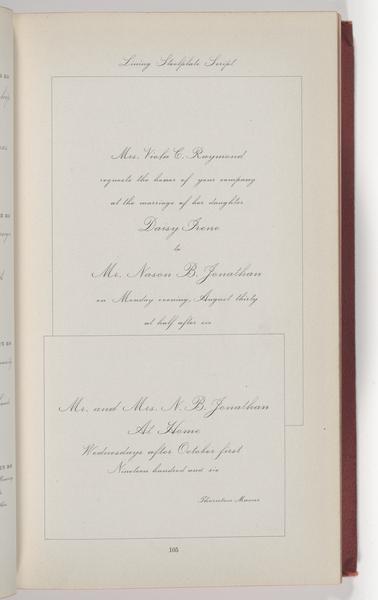 Lining Steelplate Script
Mrs. Viola C. Raymond
requests the honor of your company
at the marriage of her daughter
Daisy Irene
to
Mr. Nason B. Jonathan
on Monday evening, August thirty
at half after six
Mr. and Mrs. N. B. Jonathan
At Home
Wednesdays after October first
Nineteen hundred and six
Thornton Manor
105